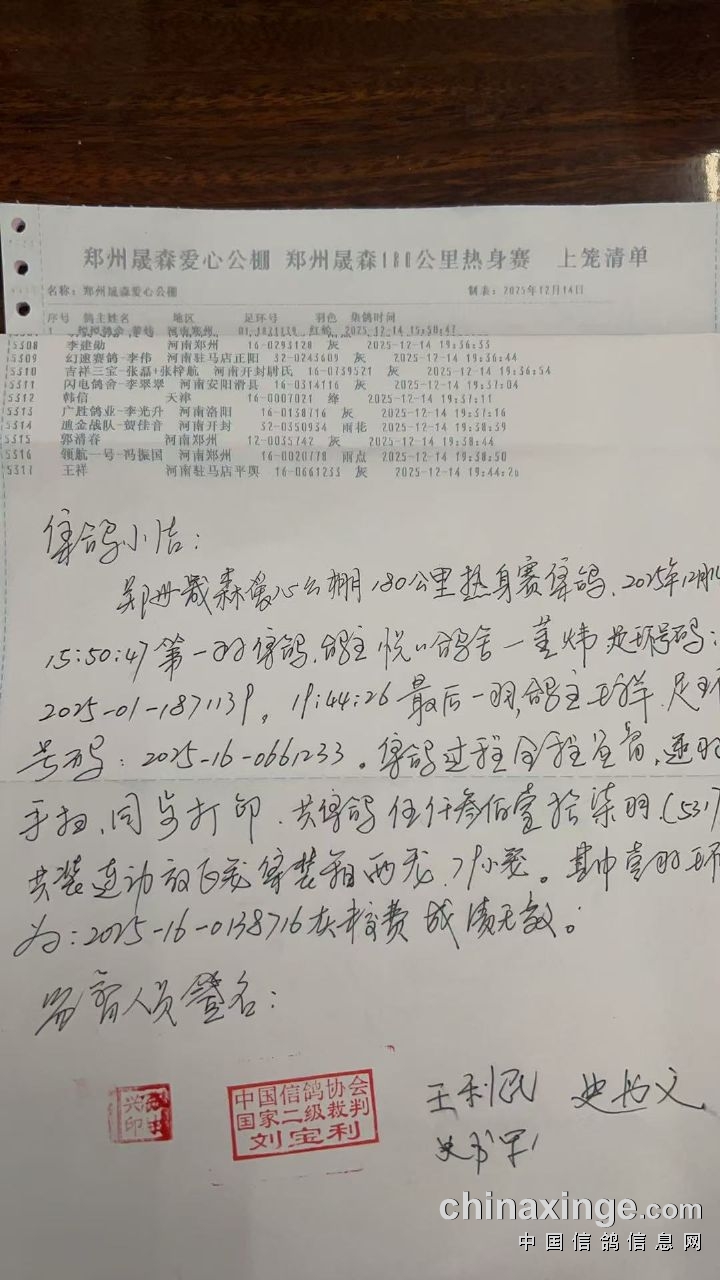 郑州晟森爱心公棚 郑州晟森180公里热身赛 上笼清单
名称: 郑州晟森爱心公棚 制表: 2025年12月14日
序号 鸽主姓名 地区 足环号 羽色 集鸽时间
1 河南郑州 01-1871139 红轮 2025-12-14 15:50:47
5308 李建勋 河南郑州 16-0293128 灰 2025-12-14 19:36:33
5309 幻速赛鸽-李伟 河南驻马店正阳 32-0243609 灰 2025-12-14 19:36:44
5310 吉祥三宝-张磊+张梓航 河南开封尉氏 16-0739521 灰 2025-12-14 19:36:54
5311 闪电鸽舍-李翠翠 河南安阳滑县 16-0314116 灰 2025-12-14 19:37:04
5312 韩信 天津 16-0007021 绛 2025-12-14 19:37:11
5313 广胜鸽业-李光升 河南洛阳 16-0138716 灰 2025-12-14 19:37:16
5314 迪金战队-贺佳音 河南开封 32-0350934 雨花 2025-12-14 19:38:39
5315 郭清春 河南郑州 12-0035742 灰 2025-12-14 19:38:44
5316 领航一号-冯振国 河南郑州 16-0020778 雨点 2025-12-14 19:38:50
5317 王祥 河南驻马店平舆 16-0661233 灰 2025-12-14 19:44:26
集鸽小结:
郑州晟森爱心公棚180公里热身赛集鸽, 2025年12月14
15:50:47第一羽集鸽,鸽主悦悦鸽舍一姜炜 足环号码:
2025-01-1871139, 19:44:26最后一羽,鸽主王祥.足环
号码: 2025-16-0661233。集鸽过程全程监督,逐羽
手扫、同步打印.共集鸽伍仟叁佰壹拾柒羽.(5317
共装运动放飞笼集装箱两
为:2025-16-0138716未校费成绩无效。
监督人员签名:
兴
印
中国信鸽协会
国家二级裁判
刘宝利
王利民
chinaxinge.com
中国信鸽信息网